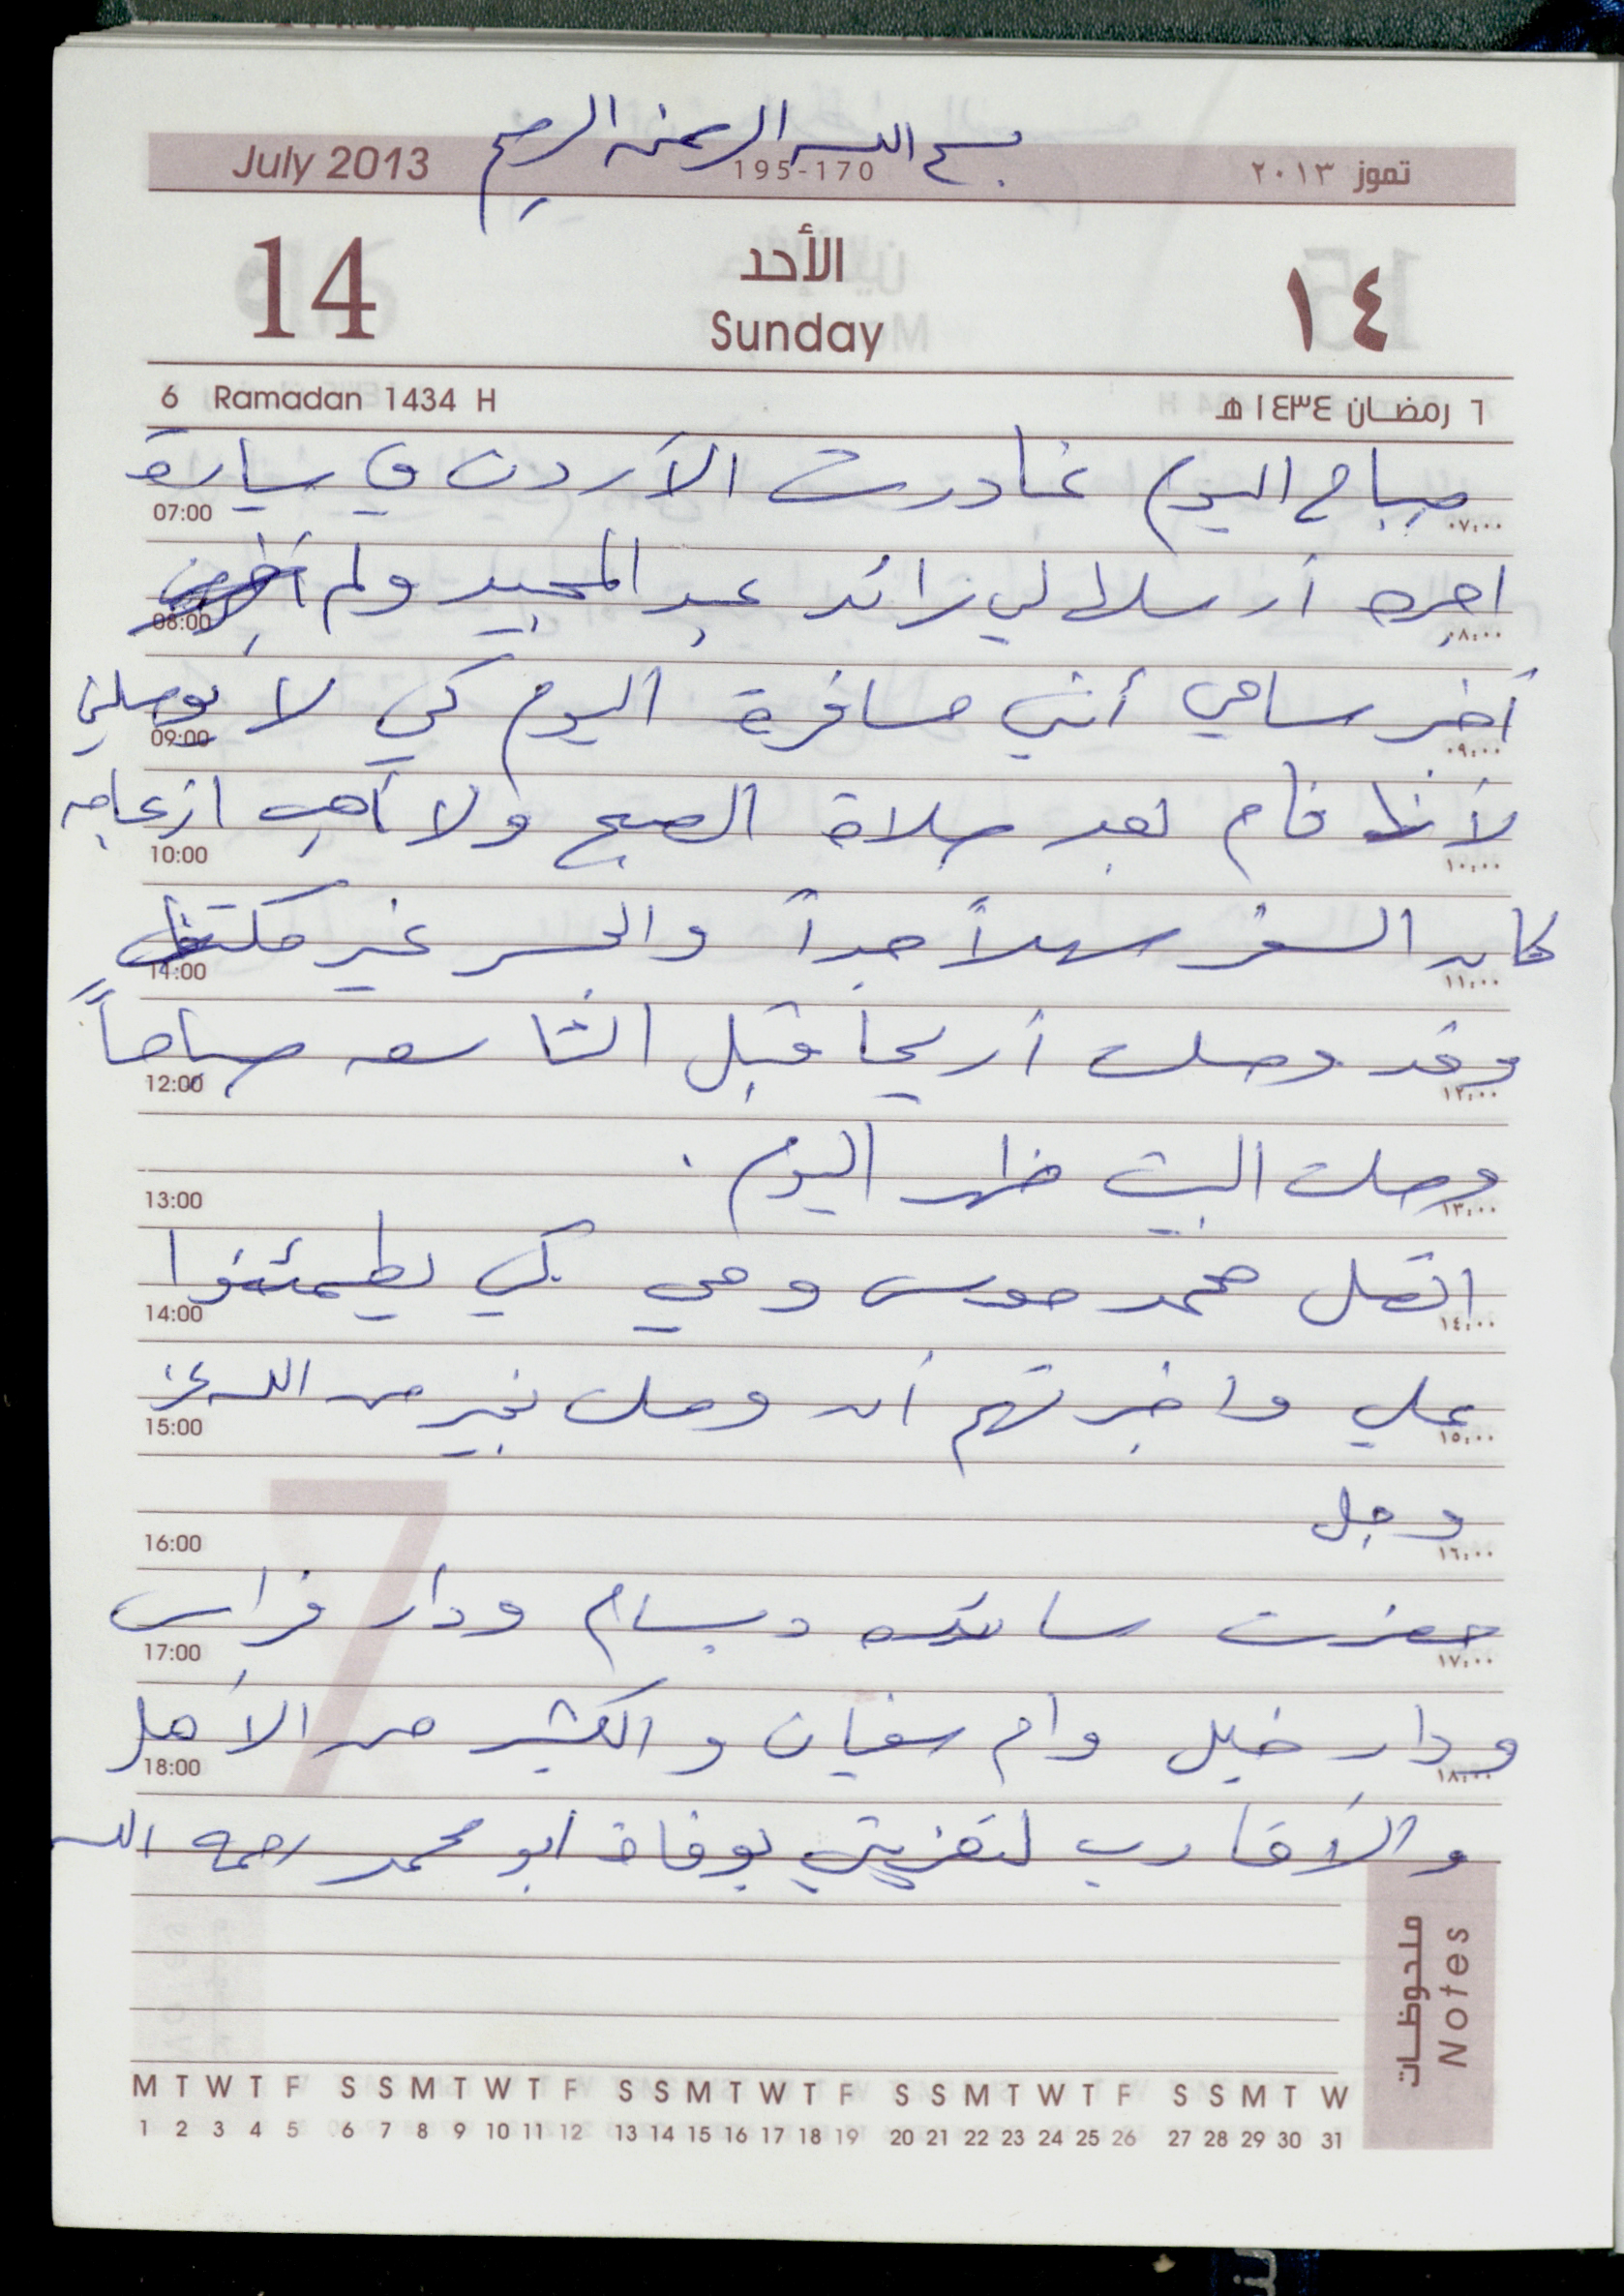 بسم الله الرحمن الرحيم
July 2013 195-170 تموز ٢٠١٣
14 الأحد ١٤
Sunday
6 Ramadan 1434 H ٦ رمضان ١٤٣٤ هـ
صباح اليوم غادرت الأردن في سيارة
07:00 ٠٧:٠٠
اجره أرسلها لي رائد عبد المجيد ولم
08:00 ٠٨:٠٠
أخبر سامي أنني مسافرة اليوم كي لا يوصلني
09:00 ٠٩:٠٠
لأنه نام بعد صلاة الصبح ولا أحب ازعاجه
10:00 ١٠:٠٠
كان السفر سهلاً جداً والجسر غير مكتظ
11:00 ١١:٠٠
وقد وصلت أريحا قبل التاسعه صباحاً
12:00 ١٢:٠٠
وصلت البيت ظهر اليوم .
13:00 ١٣:٠٠
اتصل محمد موسى ومي كي يطمئنوا
14:00 ١٤:٠٠
علي واخبرتهم أن وصلت بخير من الله عز
15:00 ١٥:٠٠
وجل
16:00 ١٦:٠٠
حضرت وبسام ودار فراس
17:00 ١٧:٠٠
ودار خليل وام سفيان والكثير من الأهل
18:00 ١٨:٠٠
والأقارب لتعزيتي بوفاة ابو محمد رحمه الله
ملحوظات
Notes
M T W T F S S M T W T F S S M T W T F S S M T W T F S S M T W
1 2 3 4 5 6 7 8 9 10 11 12 13 14 15 16 17 18 19 20 21 22 23 24 25 26 27 28 29 30 31